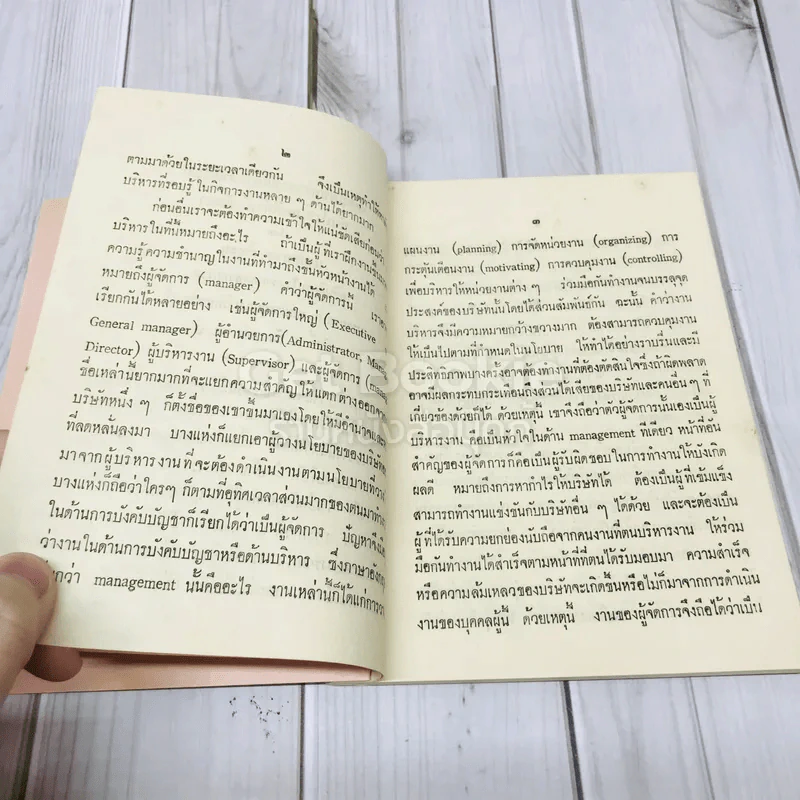 ๒
ตามมาด้วยในระยะเวลาเดียวกัน จึงเป็นเหตุทำให้
บริหารที่รอบรู้ ในกิจการงานหลาย ๆ ด้านได้ยากมาก
ก่อนอื่นเราจะต้องทำความเข้าใจให้แน่ชัดเสียก่อนว่า
บริหารในที่นี้หมายถึงอะไร ถ้าเป็นผู้ที่เราฝึกงานขึ้นมา
ความรู้ ความชำนาญในงานที่ทำมาถึงขั้นหัวหน้างานได้
หมายถึงผู้จัดการ (manager) คำว่าผู้จัดการนี้ เรา
เรียกกันได้หลายอย่าง เช่นผู้จัดการใหญ่ (Executive
General manager) ผู้อำนวยการ(Administrator,
Director) ผู้บริหารงาน (Supervisor) และผู้จัดการ
ชื่อเหล่านี้ยากมากที่จะแยกความสำคัญให้แตกต่างออกจาก
บริษัทหนึ่ง ๆ ก็ตั้งชื่อของเขาขึ้นมาเองโดยให้มีอำนาจและ
ที่ลดหลั่นลงมา บางแห่งก็แยกเอาผู้วางนโยบายของบริษัท
มาจากผู้บริหารงานที่จะต้องดำเนินงานตามนโยบายที่วาง
บางแห่งก็ถือว่าใครๆ ก็ตามที่อุทิศเวลาส่วนมากของตนมาทำงาน
ในด้านการบังคับบัญชาก็เรียกได้ว่าเป็นผู้จัดการ ปัญหาจึงมี
ว่างานในด้านการบังคับบัญชาหรือด้านบริหาร ซึ่งภาษาอังกฤษ
เรียกว่า management นั้นคืออะไร งานเหล่านี้ก็ได้แก่การวาง
๓
แผนงาน (planning) การจัดหน่วยงาน (organizing) การ
กระตุ้นเตือนงาน (motivating) การควบคุมงาน (controlling)
เพื่อบริหารให้หน่วยงานต่าง ๆ ร่วมมือกันทำงานจนบรรลุจุด
ประสงค์ของบริษัทนั้นโดยได้ส่วนสัมพันธ์กัน ฉะนั้น คำว่างาน
บริหารจึงมีความหมายกว้างขวางมาก ต้องสามารถควบคุมงาน
ให้เป็นไปตามที่กำหนดในนโยบาย ให้ทำได้อย่างราบรื่นและมี
ประสิทธิภาพบางครั้งอาจต้องทำงานที่ต้องตัดสินใจซึ่งถ้าผิดพลาด
อาจมีผลกระทบกระเทือนถึงส่วนได้เสียของบริษัทและคนอื่นๆ ที่
เกี่ยวข้องด้วยก็ได้ ด้วยเหตุนี้ เขาจึงถือว่าตัวผู้จัดการนั้นเองเป็นผู้
บริหารงาน คือเป็นหัวใจในด้าน management ทีเดียว หน้าที่อัน
สำคัญของผู้จัดการก็คือเป็นผู้รับผิดชอบในการทำงานให้บังเกิด
ผลดี หมายถึงการหากำไรให้บริษัทได้ ต้องเป็นผู้ที่เข้มแข็ง
สามารถทำงานแข่งขันกับบริษัทอื่น ๆ ได้ด้วย และจะต้องเป็น
ผู้ที่ได้รับความยกย่องนับถือจากคนงานที่ตนบริหารงาน ให้ร่วม
มือกันทำงานได้สำเร็จตามหน้าที่ที่ตนได้รับมอบมา ความสำเร็จ
หรือความล้มเหลวของบริษัทจะเกิดขึ้นหรือไม่ก็มาจากการดำเนิน
งานของบุคคลผู้นี้ ด้วยเหตุนี้ งานของผู้จัดการจึงถือได้ว่าเป็น